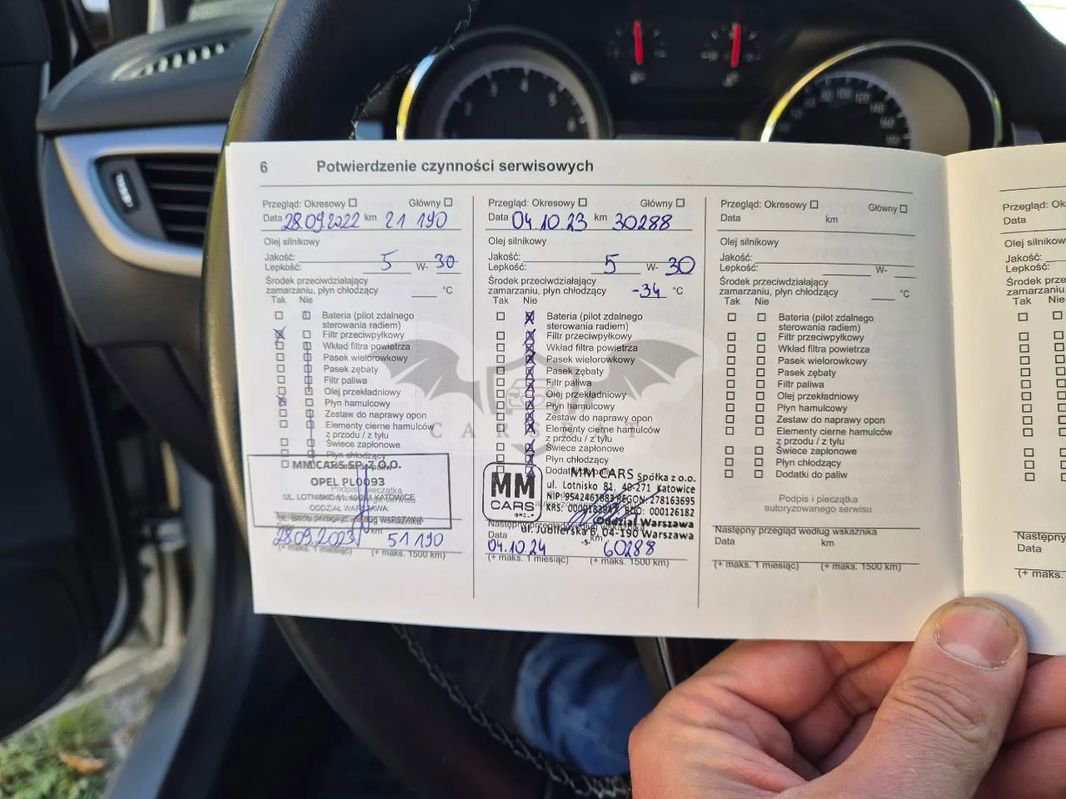 6 Potwierdzenie czynności serwisowych
Przegląd: Okresowy ☐ Główny ☐
Data 28.09.2022 km 21 190
Olej silnikowy
Jakość:
Lepkość: 5 W- 30
Środek przeciwdziałający
zamarzaniu, płyn chłodzący °C
Tak Nie
Bateria (pilot zdalnego
sterowania radiem)
Filtr przeciwpyłkowy
Wkład filtra powietrza
Pasek wielorowkowy
Pasek zębaty
Filtr paliwa
Olej przekładniowy
Płyn hamulcowy
Zestaw do naprawy opon
Elementy cierne hamulców
z przodu / z tyłu
Świece zapłonowe
Płyn chłodzący
MM CARS SP. Z O.O.
OPEL PL0093
UL. LOTNISKO 81, 40-271 KATOWICE
ODDZIAŁ WARSZAWA:
Następny przegląd według wskaźnika
28.09.2023 51 190
(+ maks. 1 miesiąc) (+ maks. 1500 km)
Przegląd: Okresowy ☐ Główny ☐
Data 04.10.23 km 30288
Olej silnikowy
Jakość:
Lepkość: 5 W- 30
Środek przeciwdziałający
zamarzaniu, płyn chłodzący -34 °C
Tak Nie
Bateria (pilot zdalnego
sterowania radiem)
Filtr przeciwpyłkowy
Wkład filtra powietrza
Pasek wielorowkowy
Pasek zębaty
Filtr paliwa
Olej przekładniowy
Płyn hamulcowy
Zestaw do naprawy opon
Elementy cierne hamulców
z przodu / z tyłu
Świece zapłonowe
Płyn chłodzący
Dodatki do paliw
MM
CARS
MM CARS Spółka z o.o.
ul. Lotnisko 81, 40-271 Katowice
REGON: 278163695
BDO: 000126182
Oddział Warszawa
ul. Jubilerska 6, 04-190 Warszawa
Następny przegląd według wskaźnika
Data km
04.10.24 60288
(+ maks. 1 miesiąc) (+ maks. 1500 km)
Przegląd: Okresowy ☐ Główny ☐
Data km
Olej silnikowy
Jakość:
Lepkość: W-
Środek przeciwdziałający
zamarzaniu, płyn chłodzący °C
Tak Nie
Bateria (pilot zdalnego
sterowania radiem)
Filtr przeciwpyłkowy
Wkład filtra powietrza
Pasek wielorowkowy
Pasek zębaty
Filtr paliwa
Olej przekładniowy
Płyn hamulcowy
Zestaw do naprawy opon
Elementy cierne hamulców
z przodu / z tyłu
Świece zapłonowe
Płyn chłodzący
Dodatki do paliw
Podpis i pieczątka
autoryzowanego serwisu
Następny przegląd według wskaźnika
Data km
(+ maks. 1 miesiąc) (+ maks. 1500 km)
Przegląd: Ok
Data
Olej silnikowy
Jakość:
Lepkość:
Środek przec
zamarzaniu,
Tak Nie
Następny
Data
(+ maks.